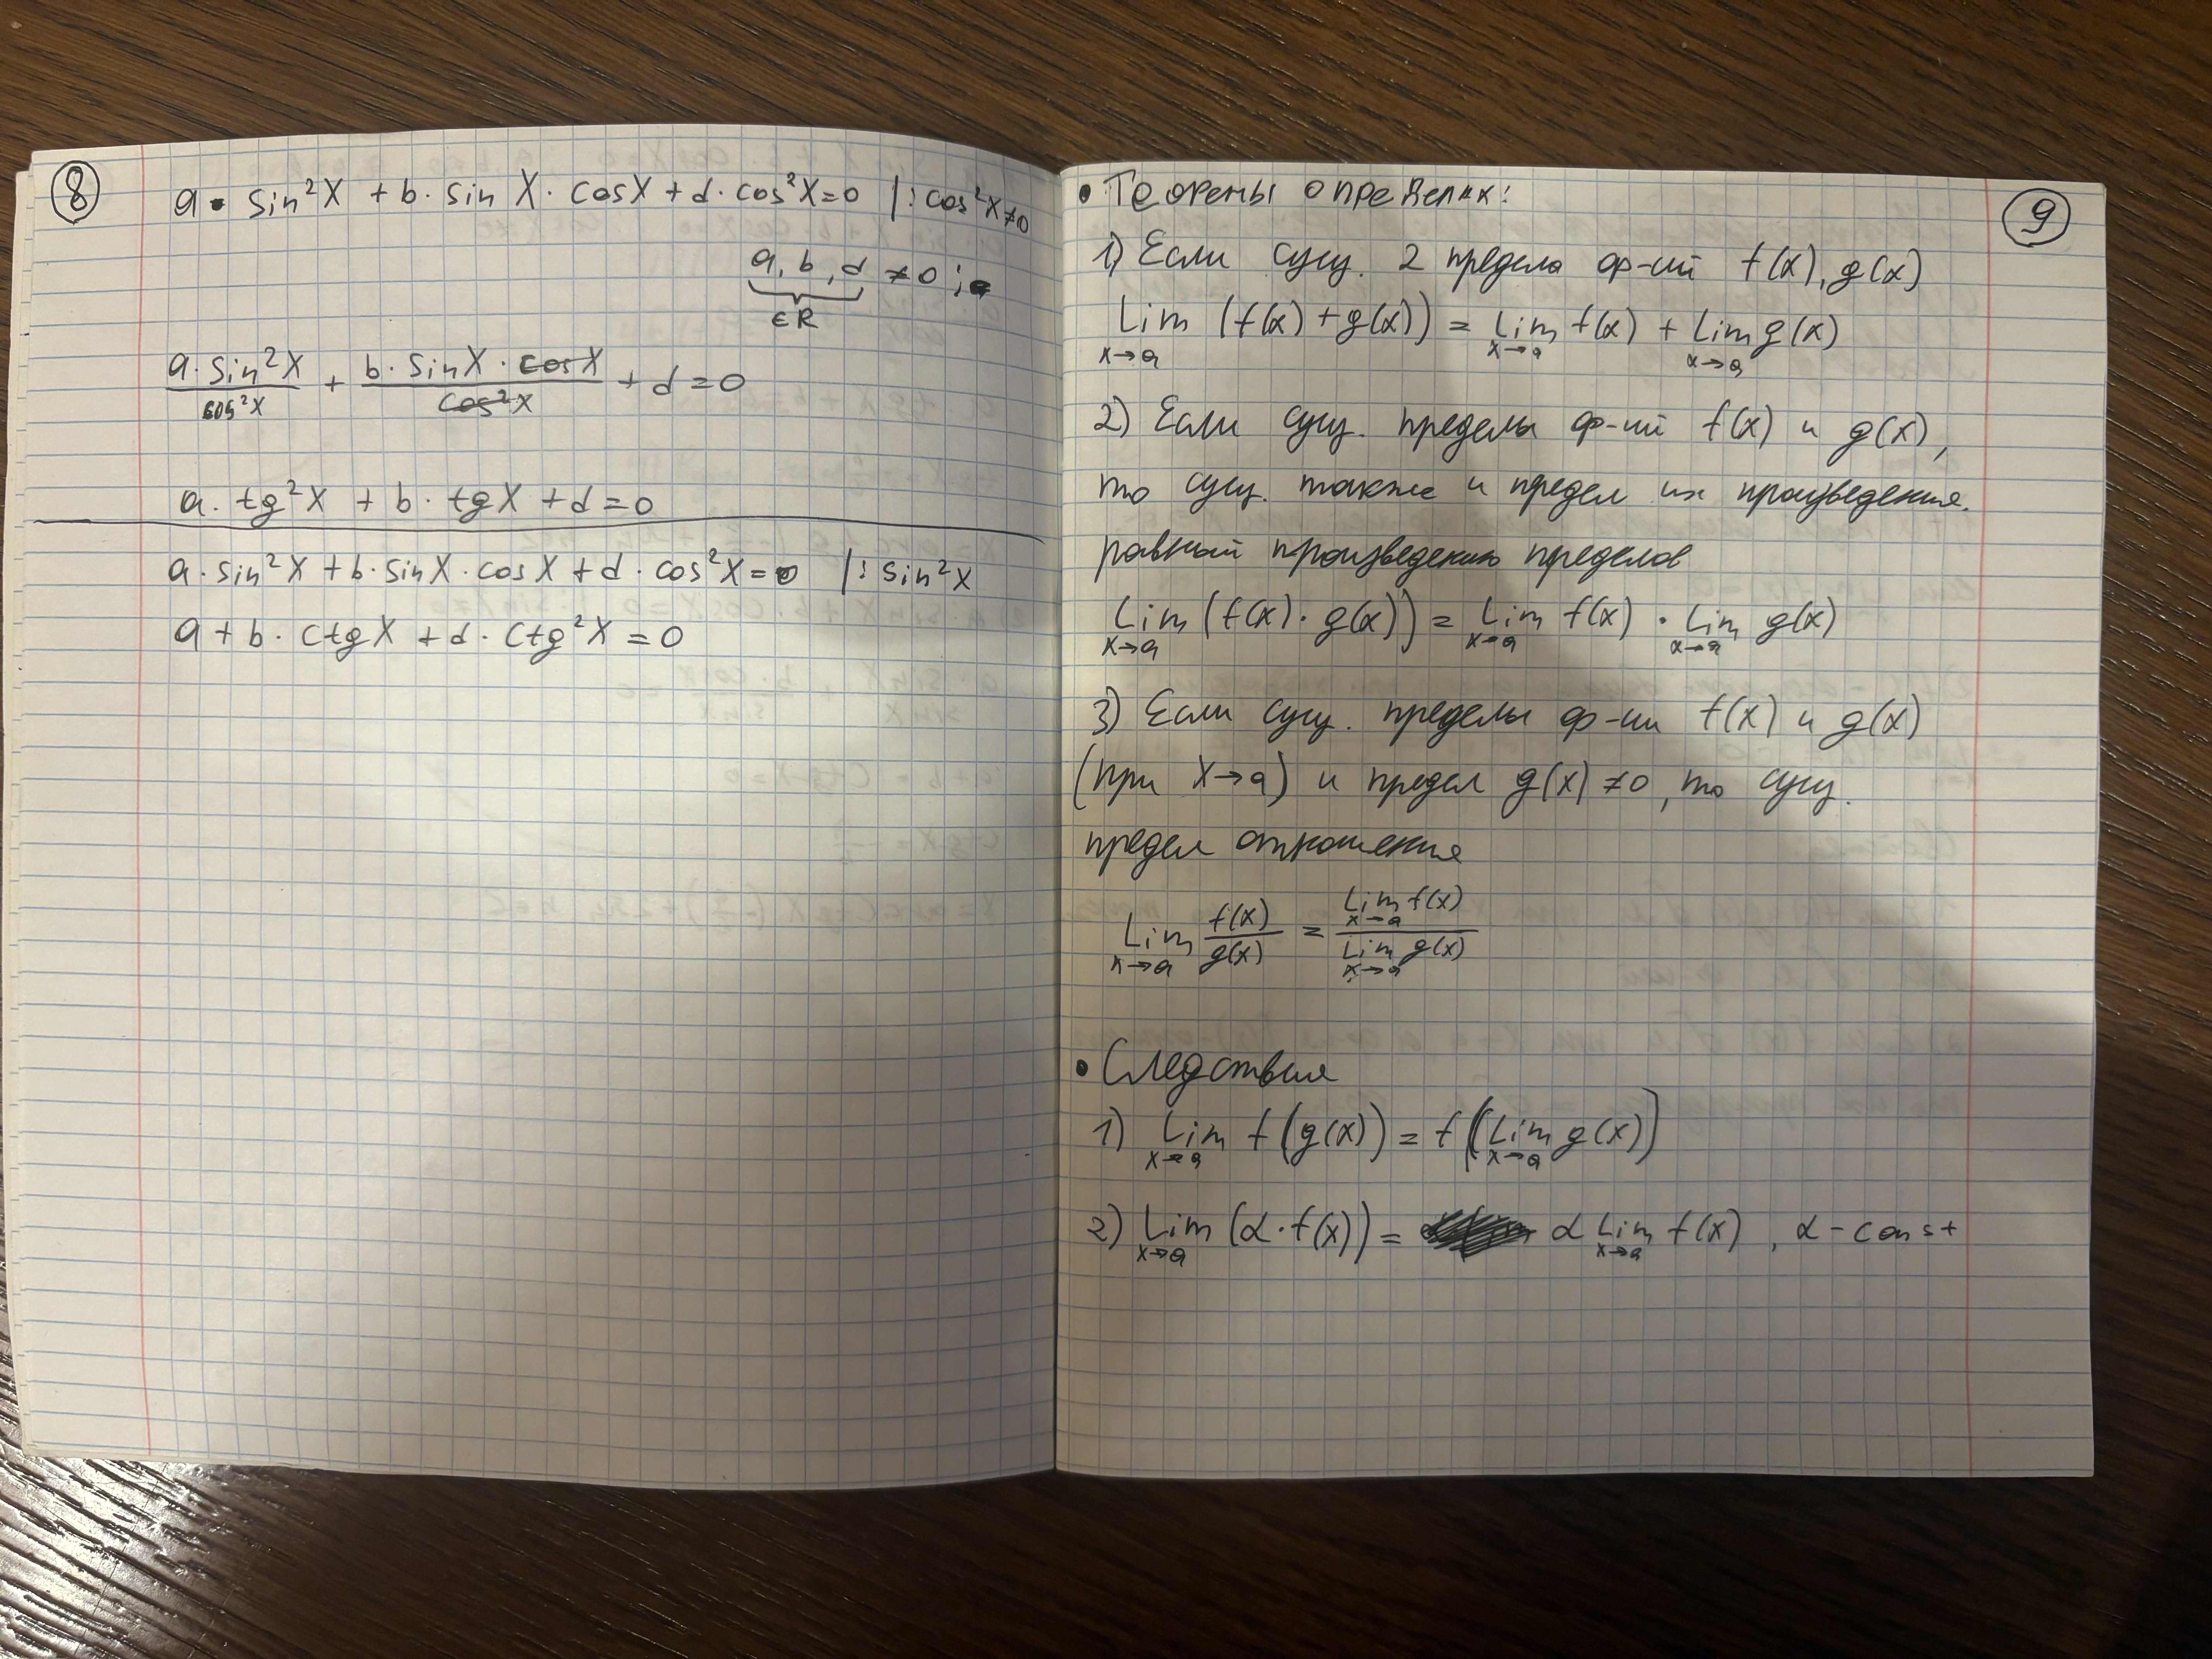 8
a · sin²x + b · sin x · cosx + d · cos²x=0 |: cos²x≠0
a, b, d ≠0 ;
∈R
a · sin²x / cos²x + b · sinx · cosx / cos²x + d =0
a · tg²x + b · tgx + d=0
a · sin²x + b · sinx · cosx + d · cos²x=0 |: sin²x
a + b · ctgx + d · ctg²x = 0
9
• Теоремы о пределах:
1) Если сущ. 2 предела ф-ий f(x), g(x)
Lim x→a (f(x) + g(x)) = Lim x→a f(x) + Lim x→a g(x)
2) Если сущ. пределы ф-ий f(x) и g(x),
то сущ. также и предел их произведения.
равный произведению пределов
Lim x→a (f(x) · g(x)) = Lim x→a f(x) · Lim x→a g(x)
3) Если сущ. пределы ф-ии f(x) и g(x)
(при x→a) и предел g(x) ≠0, то сущ.
предел отношения
Lim x→a f(x)/g(x) = Lim x→a f(x) / Lim x→a g(x)
• Следствия
1) Lim x→a f(g(x)) = f(Lim x→a g(x))
2) Lim x→a (α · f(x)) = α Lim x→a f(x), α - const